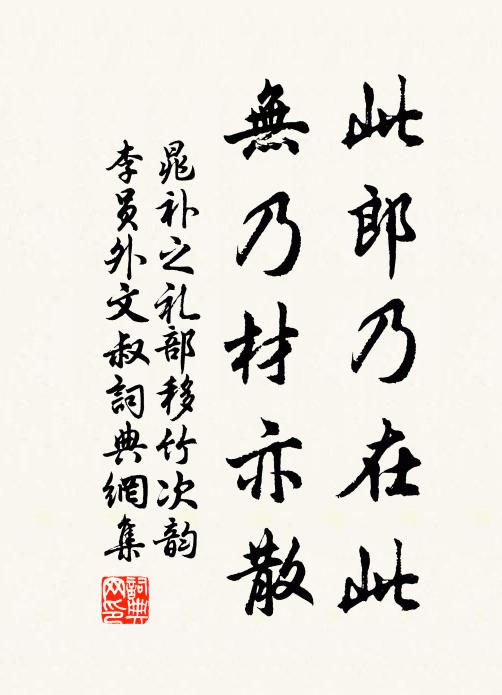 此郎乃在此
無乃材亦散
晁补之礼部移竹次韵
李员外文叔詞典網集
詞典网印